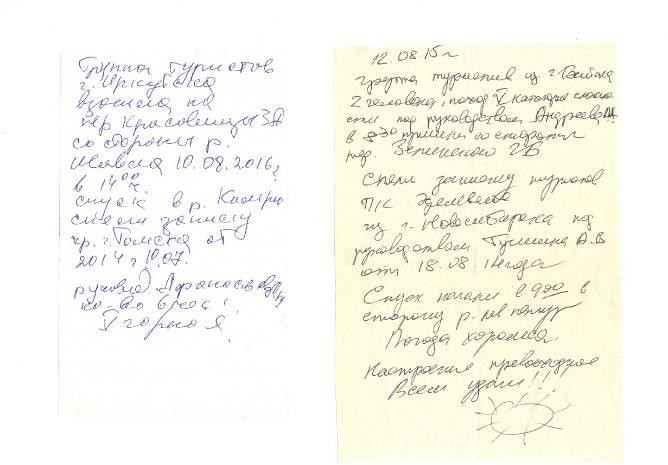 Группа туристов
г. Иркутска
взошла на
пер Красавицы 3А
со стороны р.
Шавла 10.08.2016г
в 14 00 ч.
спуск в р.
сняли записку
гр. г. Томска от
2014 г 10.07.
руковод.
кол-во 6 чел.
V горная
12.08.15 г
группа туристов из г.
2 человека, поход V категории сложно
сти под руководством Андреева
в 8 30 пришли со стороны
пер. 2Б
Сняли записку туристов
Т/К
из г. Новосибирска под
руководством А.В
от 18.08.
Спуск начали в 9 00 в
сторону р. лев
Погода хорошая.
Настроение превосходное
Всем удачи!!!